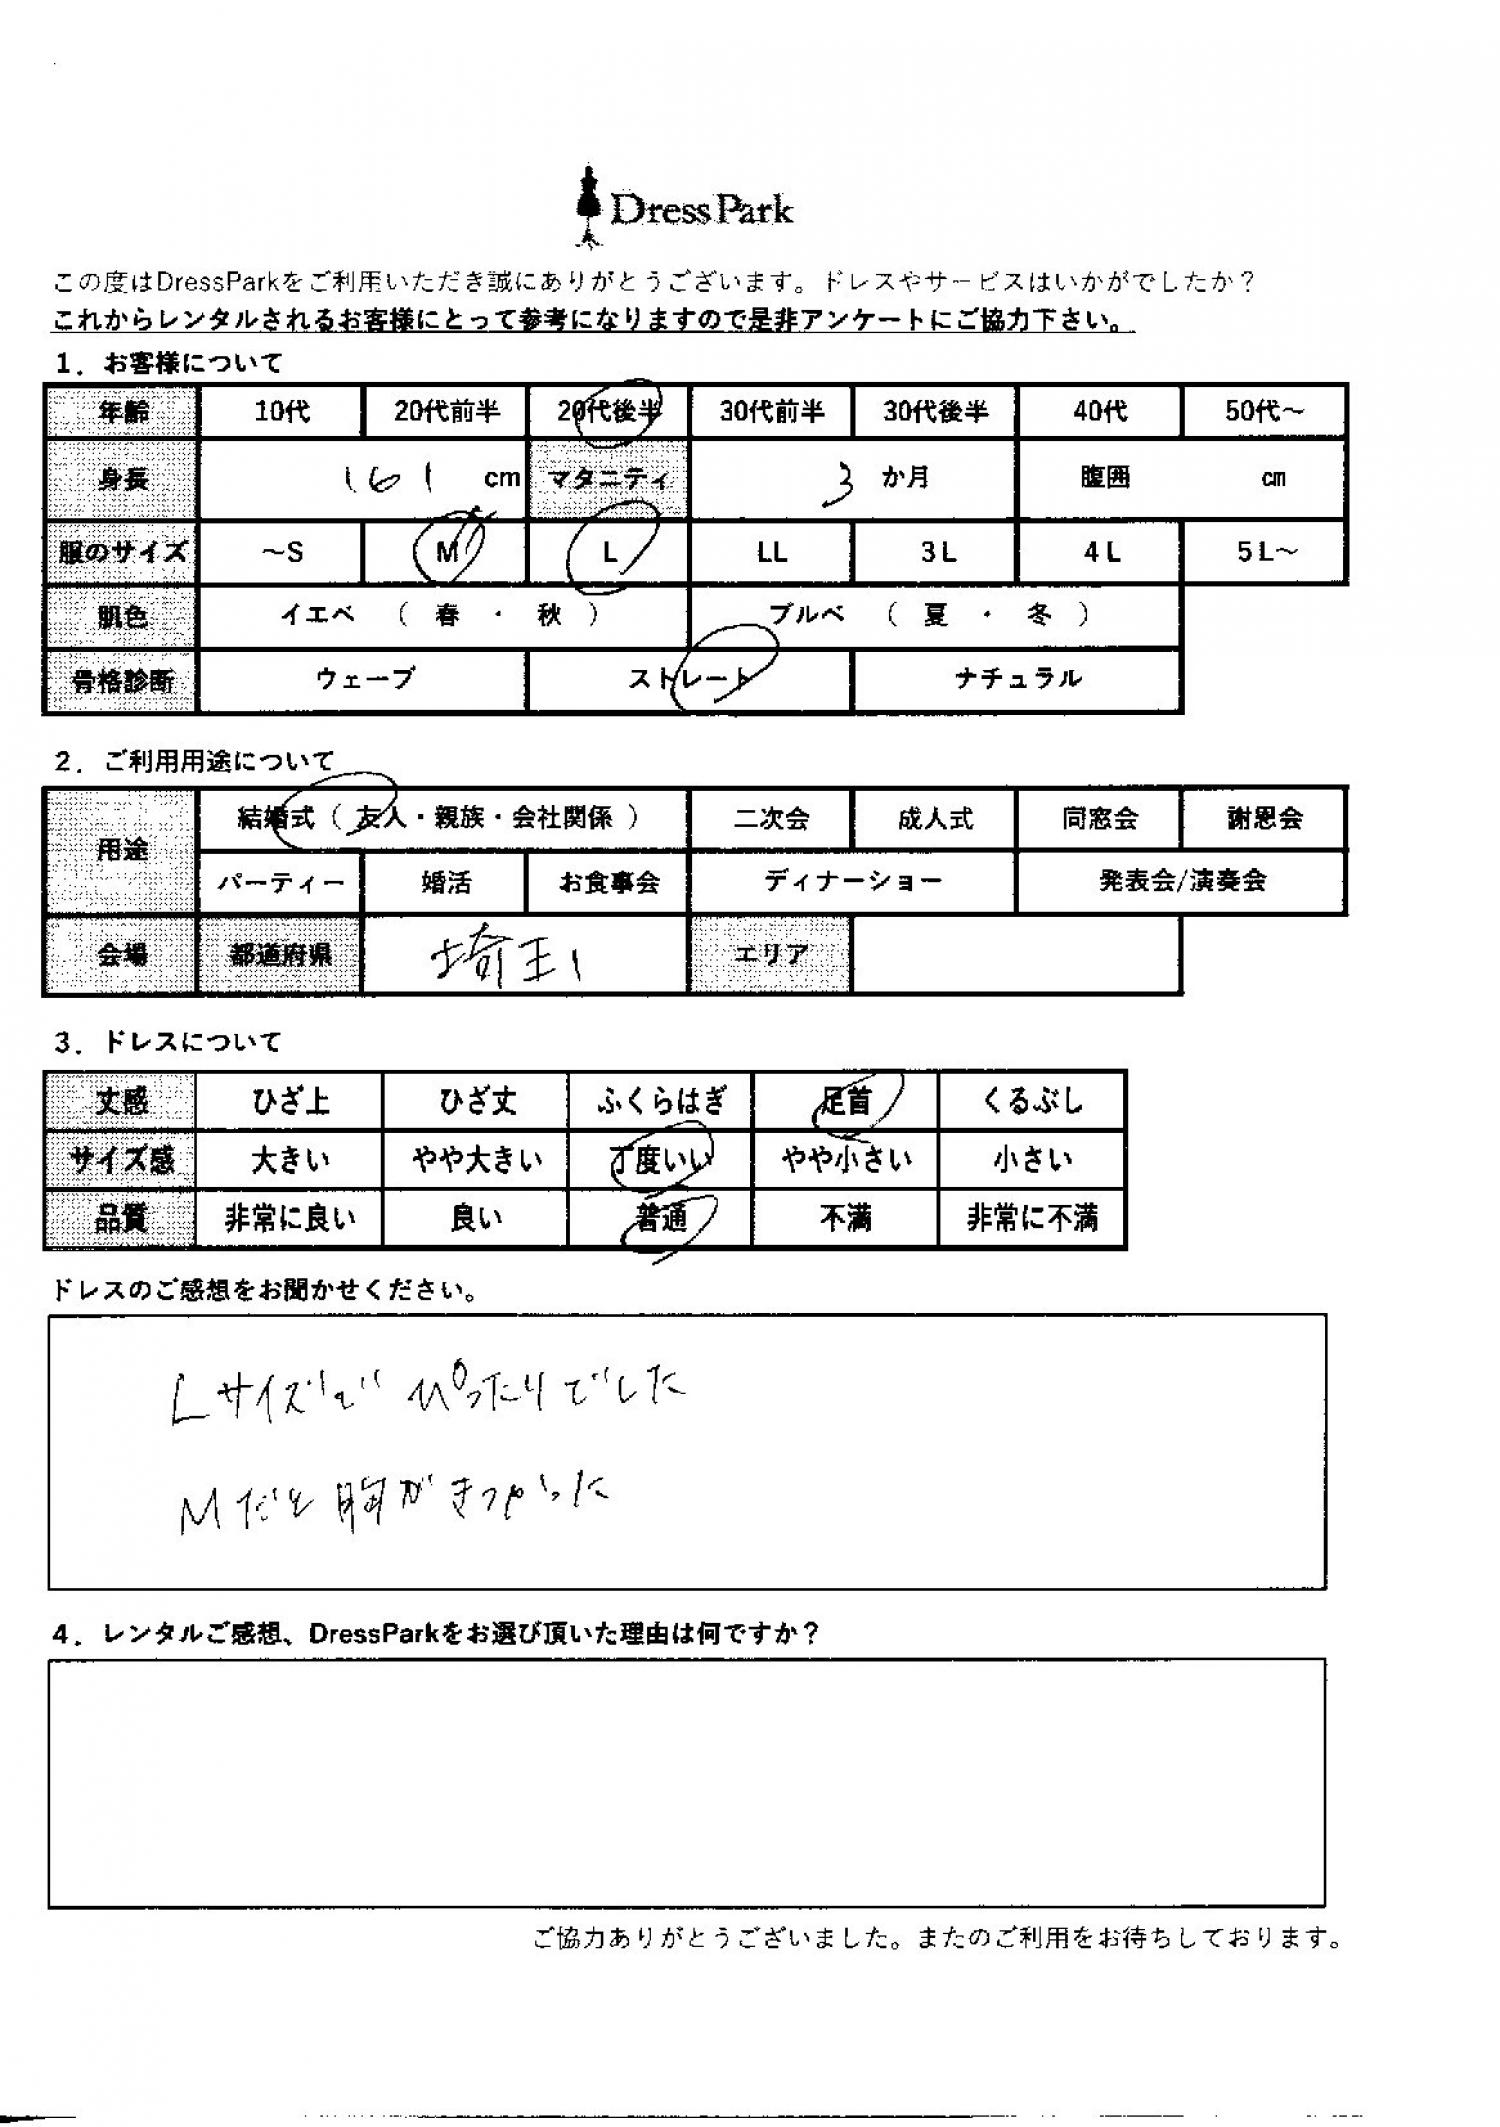 DressPark
この度はDressParkをご利用いただき誠にありがとうございます。ドレスやサービスはいかがでしたか？
これからレンタルされるお客様にとって参考になりますので是非アンケートにご協力下さい。
1．お客様について
年齢 10代 20代前半 20代後半 30代前半 30代後半 40代 50代～
身長 161 cm マタニティ 3 か月 腹囲 cm
服のサイズ ～S M L LL 3L 4L 5L～
肌色 イエベ （ 春 ・ 秋 ） ブルベ （ 夏 ・ 冬 ）
骨格診断 ウェーブ ストレート ナチュラル
2．ご利用用途について
用途 結婚式（ 友人・親族・会社関係 ） 二次会 成人式 同窓会 謝恩会
パーティー 婚活 お食事会 ディナーショー 発表会/演奏会
会場 都道府県 埼玉 エリア
3．ドレスについて
丈感 ひざ上 ひざ丈 ふくらはぎ 足首 くるぶし
サイズ感 大きい やや大きい 丁度いい やや小さい 小さい
品質 非常に良い 良い 普通 不満 非常に不満
ドレスのご感想をお聞かせください。
Lサイズで ぴったりでした
Mだと胸がきつかった
4．レンタルご感想、DressParkをお選び頂いた理由は何ですか？
ご協力ありがとうございました。またのご利用をお待ちしております。